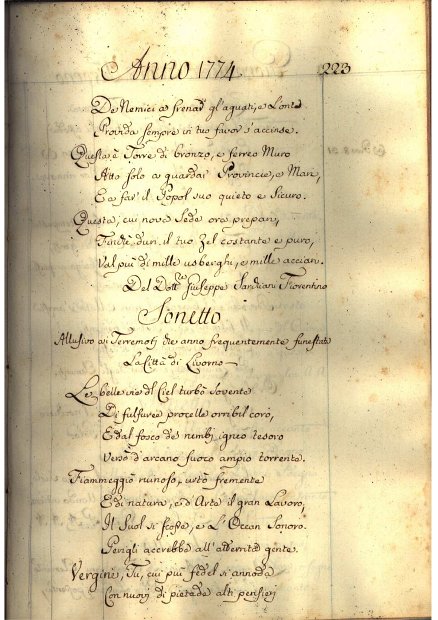 Anno 1774
223
De Nemici a frenar gl'aguati, e l'onte
Provida sempre in tuo favor s'accinse.
Questa è Torre di bronzo, e ferreo Muro
Atto solo a guardar Provincie, e Mari,
E a far' il Popol suo quieto e sicuro.
Questa, cui nova Sede ora prepari,
Fin ch'è duri il tuo Zel costante e puro,
Val più di mille usberghi, e mille acciari.
Del Dott.re Giuseppe Fiorentino
Sonetto
Allusivo ai Terremoti che anno frequentemente funestato
La Città di Livorno
Le belle vie del Ciel turbò sovente
Di sulfuree procelle orribil coro,
E dal fosco de nembi igneo tesoro
Versò d'arcano fuoco ampio torrente.
Fiammeggiò ruinoso, urtò fremente
E di natura, e d'Arte il gran Lavoro,
Il Suol si scosse, e L'Ocean Sonoro
Perigli accrebbe all'atterrita gente.
Vergine, Tu, cui più fedel si annoda
Con nuovi di pietade alti